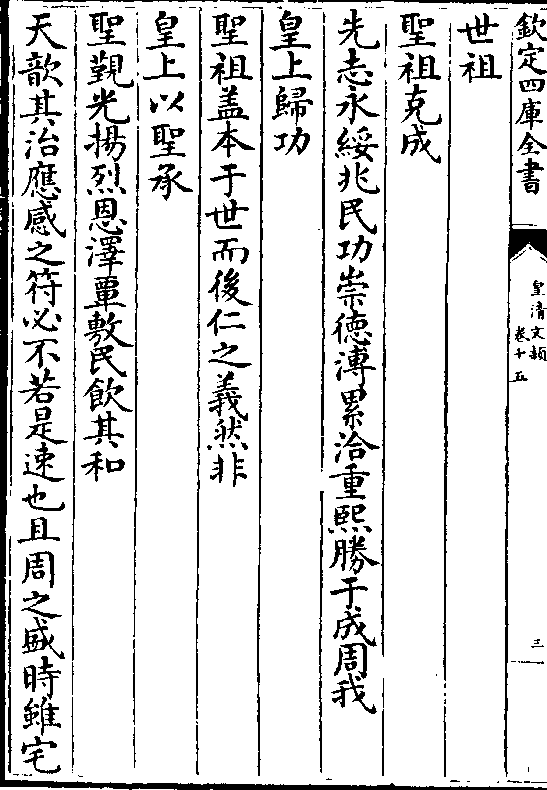 欽定四庫全書
皇清文頴
卷十五
三
世祖
聖祖克成
先志永綏兆民功崇德溥累洽重熙勝于成周我
皇上歸功
聖祖盖本于世而後仁之義然非
皇上以聖承
聖覲光揚烈恩澤覃敷民飲其和
天歆其治應感之符必不若是速也且周之盛時雖宅